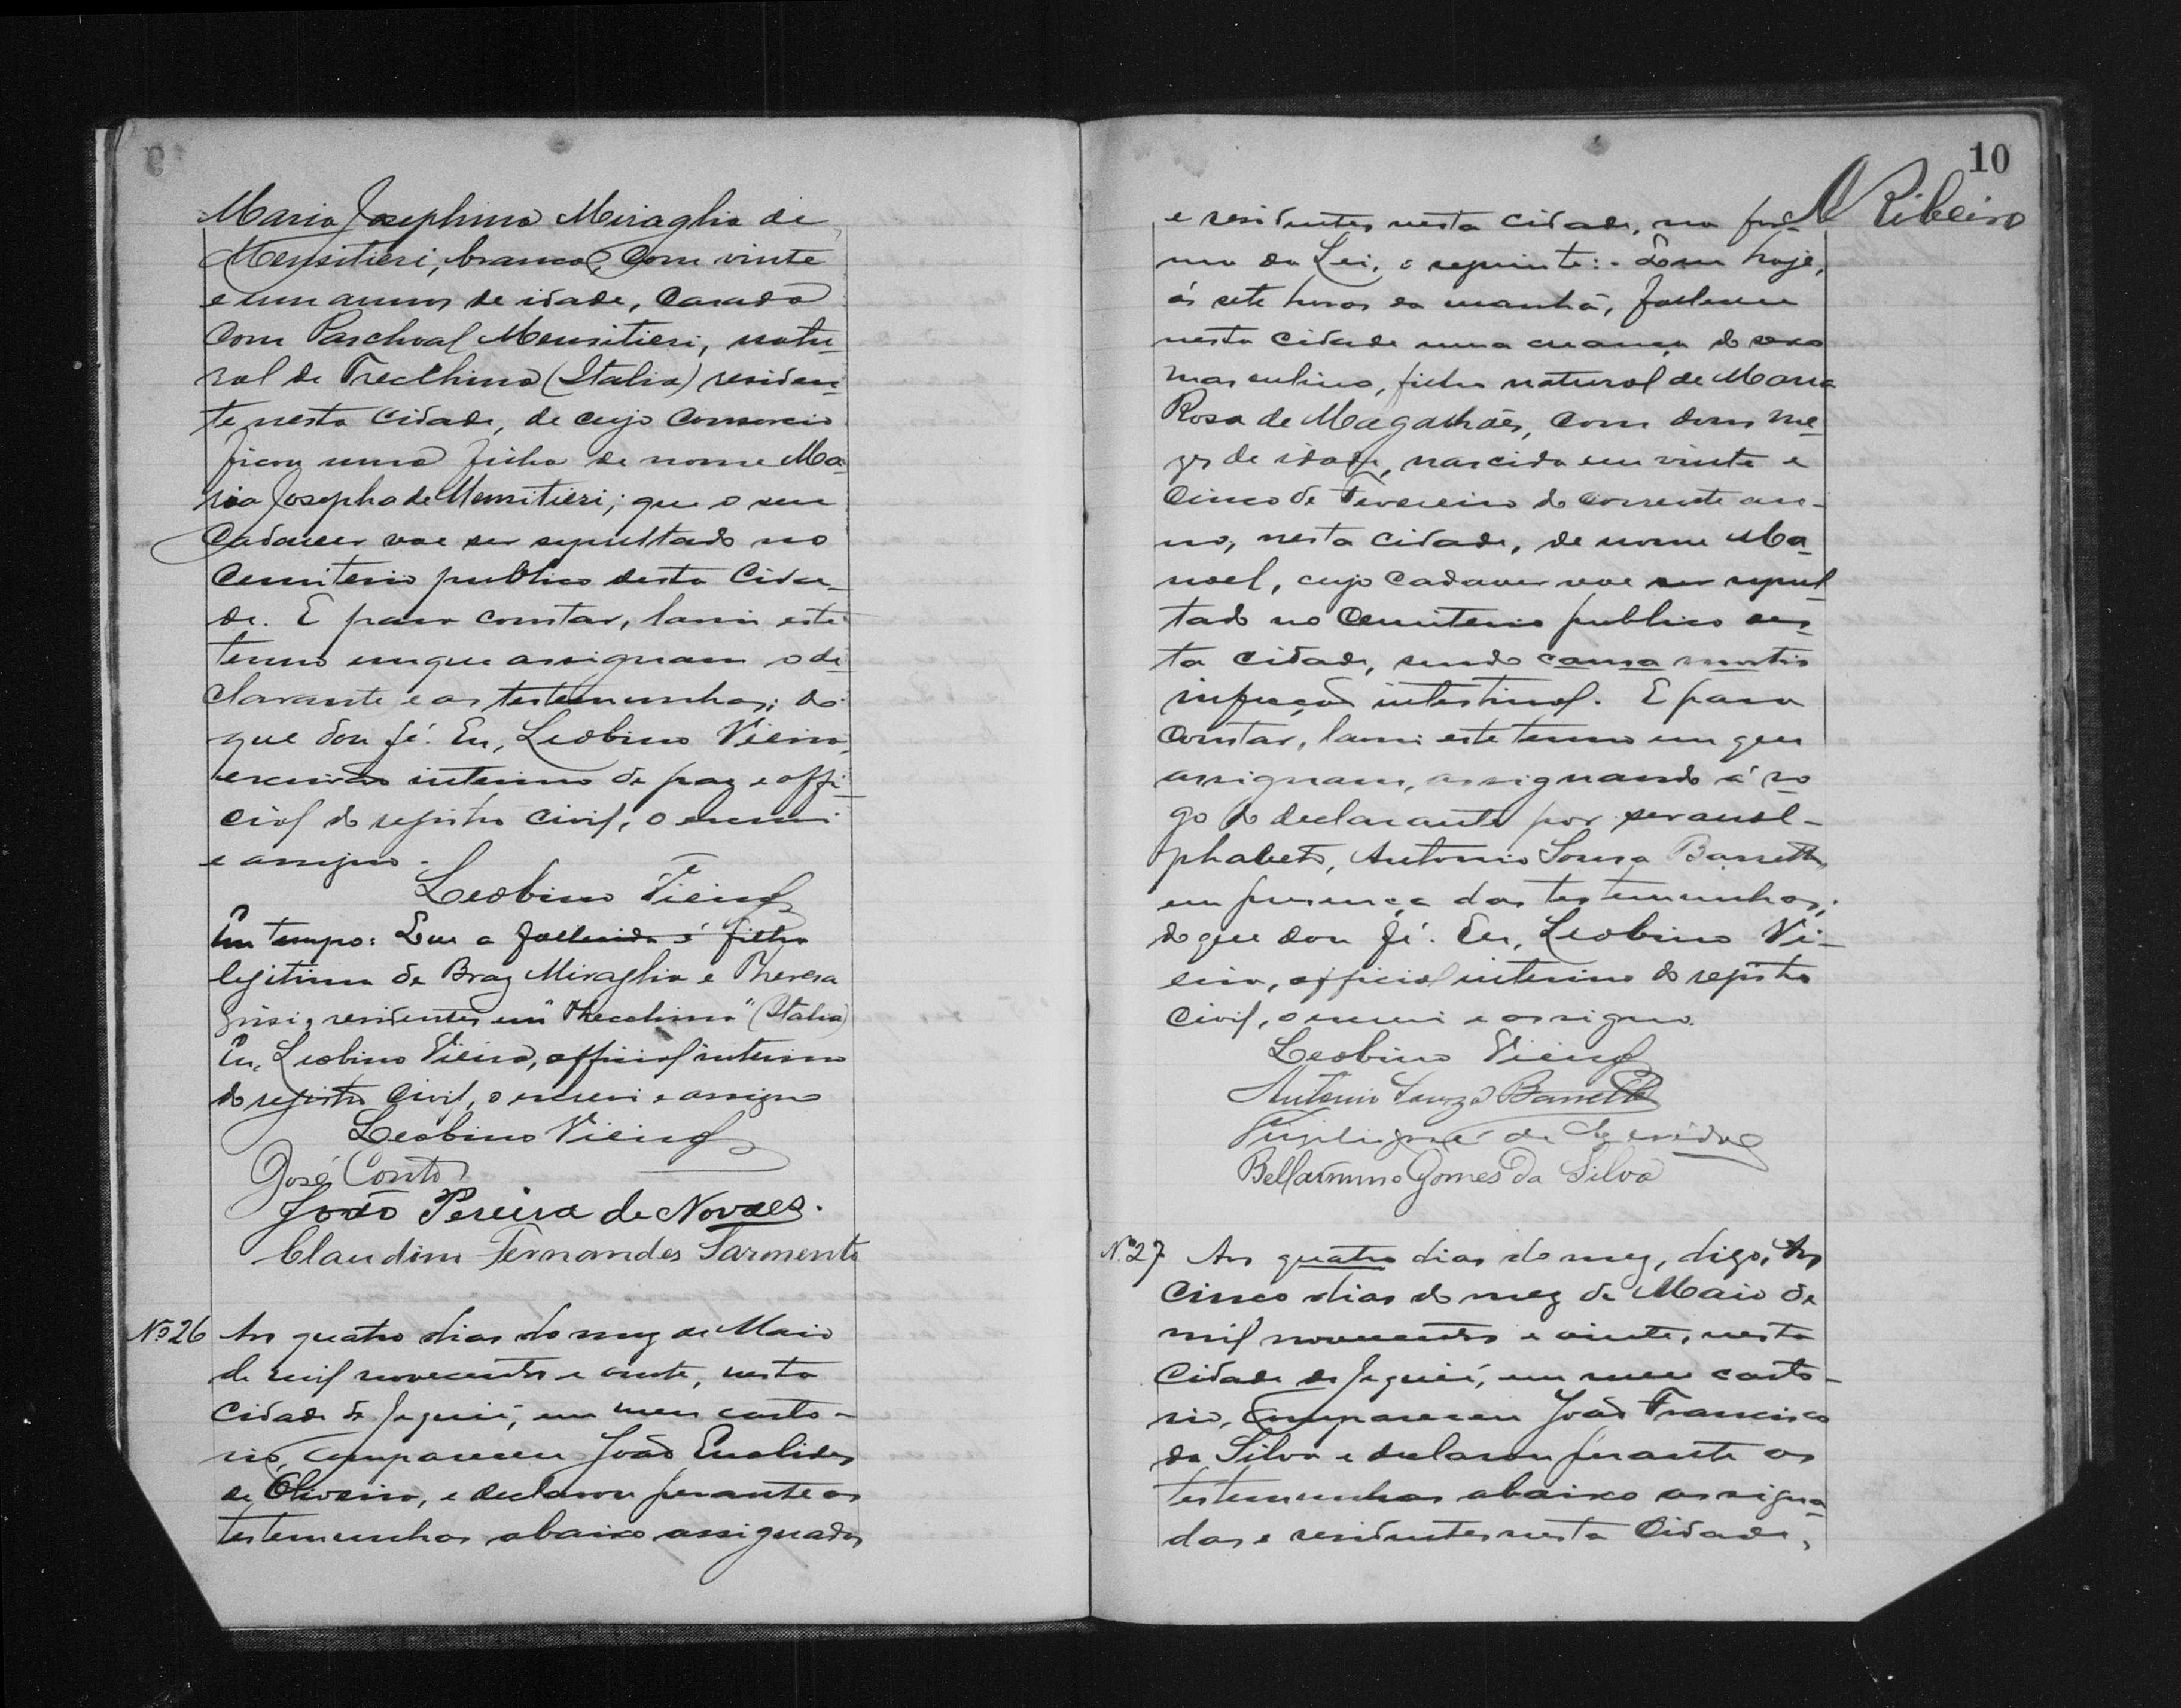 Maria Josephina Miraglia de
Mensitieri, branca, com vinte
e um annos de idade, casada
com Paschoal Mensitieri, natu-
ral de Trecchina (Italia) residen-
te nesta cidade, de cujo consorcio
ficou uma filha de nome Ma-
ria Josepha de Mensitieri; que o seu
cadaver vae ser sepultado no
cemiterio publico desta cida-
de. E para constar, lavrei este
termo em que assignam o de-
clarante e as testemunhas; do
que dou fé. Eu, Leobino Vieira,
escrivão interino de paz e offi-
cial do registro civil, o escrevi
e assigno.
Leobino Vieira
Em tempo: Que a fallecida é filha
legitima de Braz Miraglia e Theresa
Grisi, residentes em "Trecchina" (Italia)
Eu, Leobino Vieira, official interino
do registro civil, o escrevi e assigno
Leobino Vieira
José Conto
João Pereira de Novaes.
Claudim Fernandes Sarmento
Nº 26 Aos quatro dias do mez de Maio
de mil novecentos e vinte, nesta
cidade de Jequié, em meu carto-
rio, compareceu João Euclides
de Oliveira, e declarou perante as
testemunhas abaixo assignadas
10
A Ribeiro
e residentes nesta cidade, na for-
ma da Lei, o seguinte: - Que hoje,
ás sete horas da manhã, falleceu
nesta cidade uma creança do sexo
masculino, filho natural de Maria
Rosa de Magalhães, com dous me-
zes de idade, nascida em vinte e
cinco de Fevereiro do corrente an-
no, nesta cidade, de nome Ma-
noel, cujo cadaver vae ser sepul-
tado no cemiterio publico des-
ta cidade, sendo causa mortis
infecção intestinal. E para
constar, lavrei este termo em que
assignam, assignando á ro-
go do declarante por ser anal-
phabeto, Antonio Souza Barretto,
em presença das testemunhas;
do que dou fé. Eu, Leobino Vi-
eira, official interino do registro
civil, o escrevi e assigno.
Leobino Vieira
Antonio Souza Barretto
de
Bellarmino Gomes da Silva
Nº 27 Aos quatro dias do mez, digo, Aos
cinco dias do mez de Maio de
mil novecentos e vinte, nesta
cidade de Jequié, em meu carto-
rio, compareceu João Francisco
da Silva e declarou perante as
testemunhas abaixo assigna-
das e residentes nesta cidade,